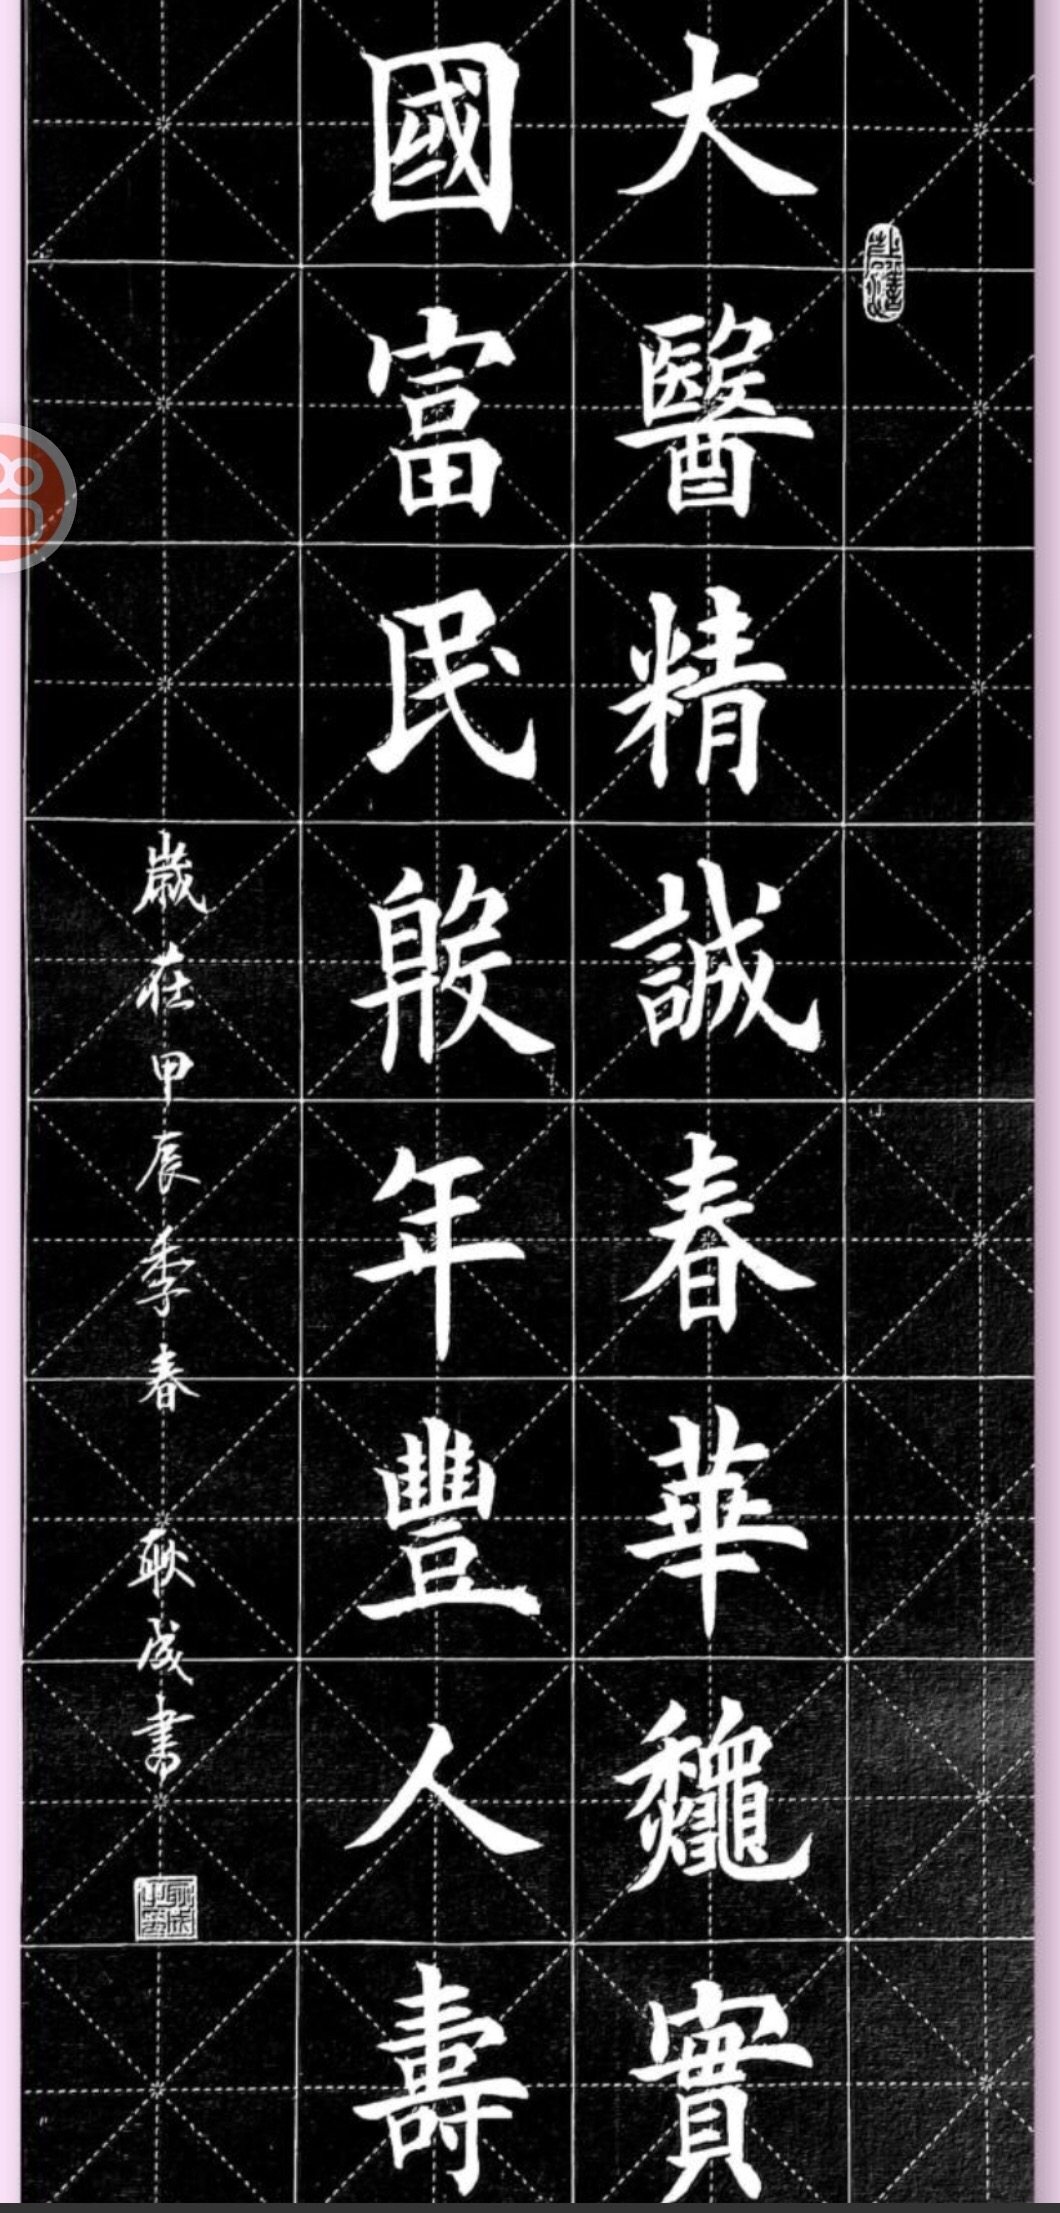 大醫精誠春華龝實
國富民殷年豐人壽
歲在甲辰季春 耿成書